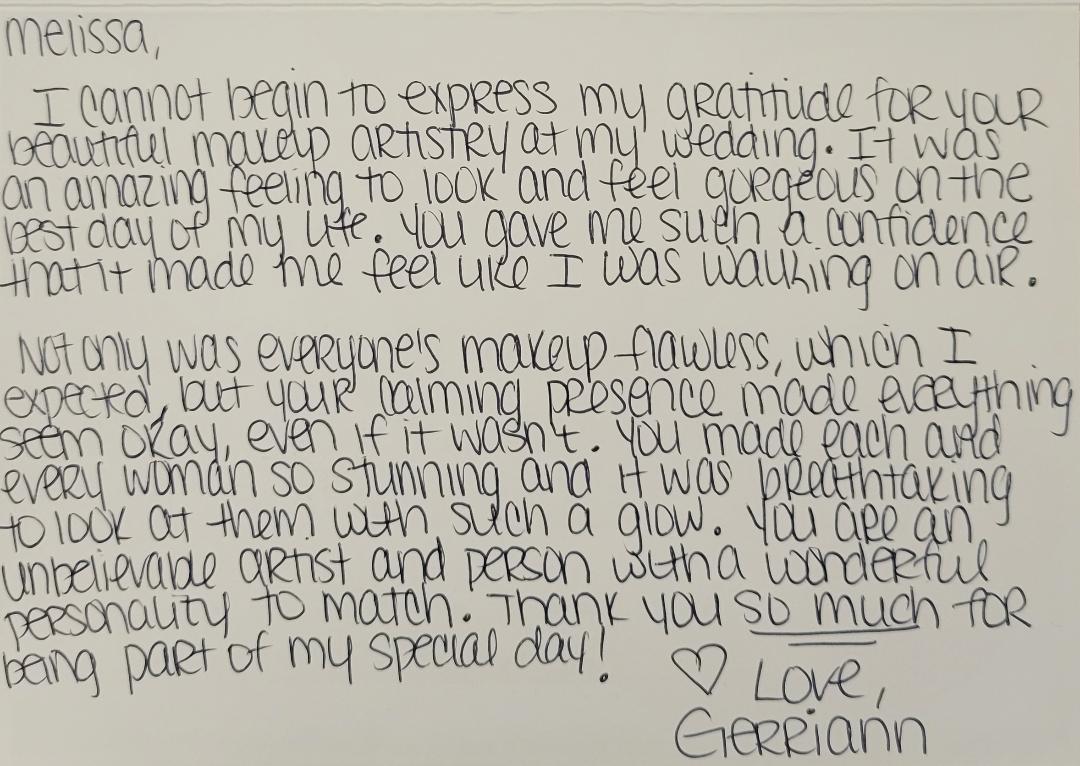 melissa,
I cannot begin to express my gratitude for your
beautiful makeup artistry at my wedding. It was
an amazing feeling to look and feel gorgeous on the
best day of my life. You gave me such a confidence
that it made me feel like I was walking on air.
Not only was everyone's makeup flawless, which I
expected, but your calming presence made everything
seem okay, even if it wasn't. You made each and
every woman so stunning and it was breathtaking
to look at them with such a glow. You are an
unbelievable artist and person with a wonderful
personality to match. Thank you so much for
being part of my special day!
♡ Love,
Gerriann